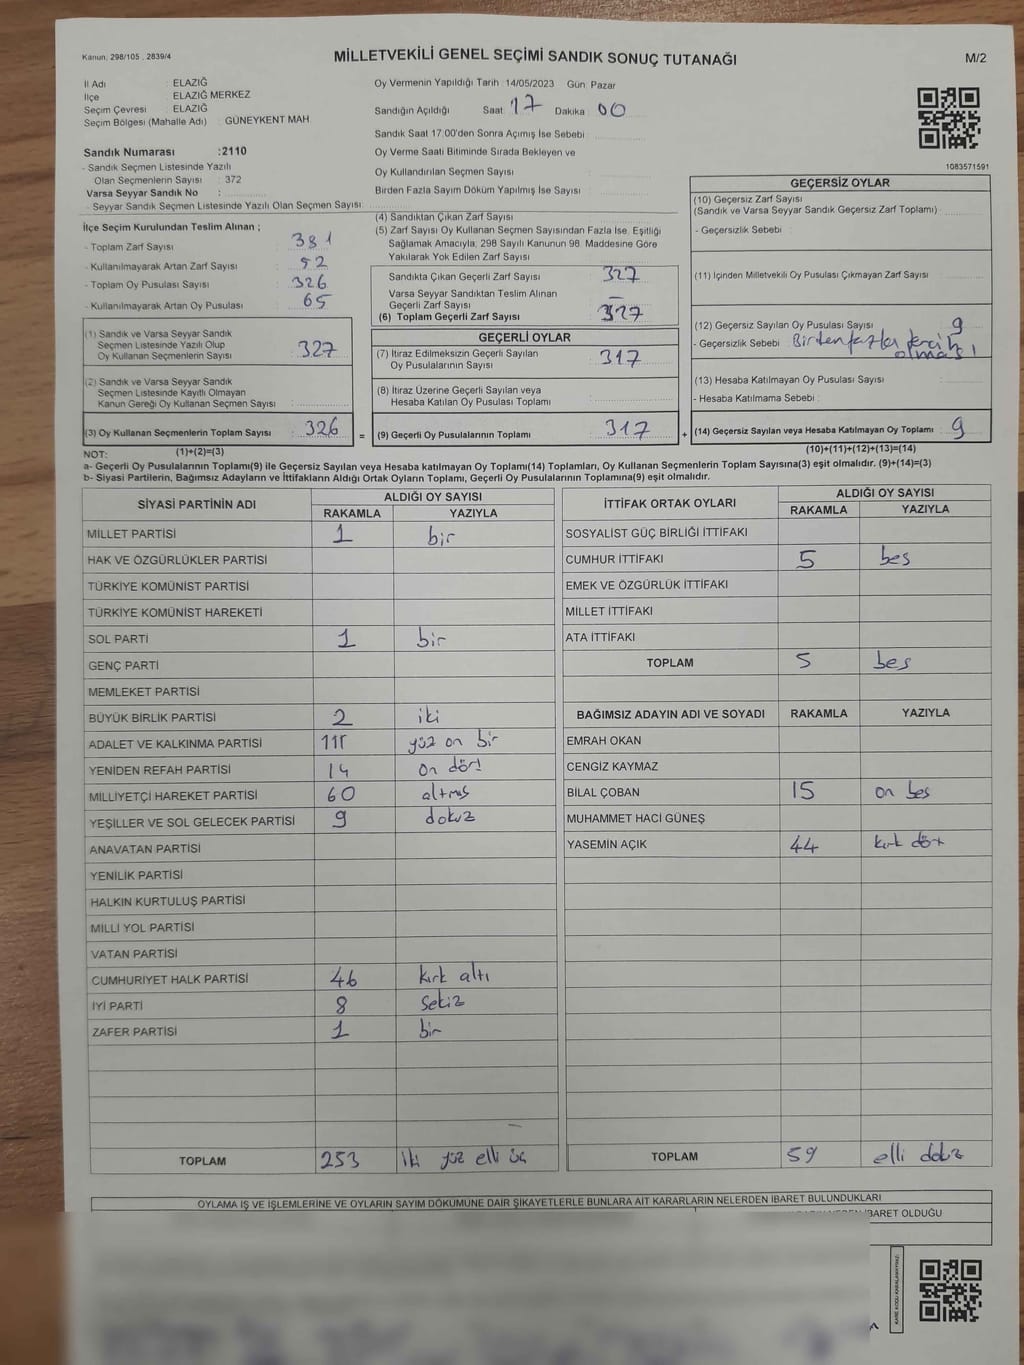 Kanun: 298/105 , 2839/4
MİLLETVEKİLİ GENEL SEÇİMİ SANDIK SONUÇ TUTANAĞI
M/2
İl Adı : ELAZIĞ
İlçe : ELAZIĞ MERKEZ
Seçim Çevresi : ELAZIĞ
Seçim Bölgesi (Mahalle Adı) : GÜNEYKENT MAH.
Oy Vermenin Yapıldığı Tarih : 14/05/2023 Gün: Pazar
Sandığın Açıldığı Saat: 17 Dakika: 00
Sandık Saat 17:00'den Sonra Açımış İse Sebebi :
Oy Verme Saati Bitiminde Sırada Bekleyen ve
Oy Kullandırılan Seçmen Sayısı :
Birden Fazla Sayım Döküm Yapılmış İse Sayısı :
1083571591
Sandık Numarası :2110
- Sandık Seçmen Listesinde Yazılı
Olan Seçmenlerin Sayısı : 372
Varsa Seyyar Sandık No :
- Seyyar Sandık Seçmen Listesinde Yazılı Olan Seçmen Sayısı:
İlçe Seçim Kurulundan Teslim Alınan ;
- Toplam Zarf Sayısı : 381
- Kullanılmayarak Artan Zarf Sayısı : 52
- Toplam Oy Pusulası Sayısı : 326
- Kullanılmayarak Artan Oy Pusulası : 65
(1) Sandık ve Varsa Seyyar Sandık
Seçmen Listesinde Yazılı Olup
Oy Kullanan Seçmenlerin Sayısı : 327
(2) Sandık ve Varsa Seyyar Sandık
Seçmen Listesinde Kayıtlı Olmayan
Kanun Gereği Oy Kullanan Seçmen Sayısı :
(3) Oy Kullanan Seçmenlerin Toplam Sayısı : 326
(1)+(2)=(3)
(4) Sandıktan Çıkan Zarf Sayısı :
(5) Zarf Sayısı Oy Kullanan Seçmen Sayısından Fazla İse, Eşitliği
Sağlamak Amacıyla, 298 Sayılı Kanunun 98. Maddesine Göre
Yakılarak Yok Edilen Zarf Sayısı :
Sandıkta Çıkan Geçerli Zarf Sayısı : 327
Varsa Seyyar Sandıktan Teslim Alınan
Geçerli Zarf Sayısı : —
(6) Toplam Geçerli Zarf Sayısı : 327
GEÇERLİ OYLAR
(7) İtiraz Edilmeksizin Geçerli Sayılan
Oy Pusulalarının Sayısı : 317
(8) İtiraz Üzerine Geçerli Sayılan veya
Hesaba Katılan Oy Pusulası Toplamı :
= (9) Geçerli Oy Pusulalarının Toplamı : 317
GEÇERSİZ OYLAR
(10) Geçersiz Zarf Sayısı
(Sandık ve Varsa Seyyar Sandık Geçersiz Zarf Toplamı) :
- Geçersizlik Sebebi :
(11) İçinden Milletvekili Oy Pusulası Çıkmayan Zarf Sayısı :
(12) Geçersiz Sayılan Oy Pusulası Sayısı : 9
- Geçersizlik Sebebi : Birden fazla tercih
olması
(13) Hesaba Katılmayan Oy Pusulası Sayısı :
- Hesaba Katılmama Sebebi :
+ (14) Geçersiz Sayılan veya Hesaba Katılmayan Oy Toplamı : 9
(10)+(11)+(12)+(13)=(14)
NOT:
a- Geçerli Oy Pusulalarının Toplamı(9) ile Geçersiz Sayılan veya Hesaba katılmayan Oy Toplamı(14) Toplamları, Oy Kullanan Seçmenlerin Toplam Sayısına(3) eşit olmalıdır. (9)+(14)=(3)
b- Siyasi Partilerin, Bağımsız Adayların ve İttifakların Aldığı Ortak Oyların Toplamı, Geçerli Oy Pusulalarının Toplamına(9) eşit olmalıdır.
SİYASİ PARTİNİN ADI ALDIĞI OY SAYISI
RAKAMLA YAZIYLA
MİLLET PARTİSİ 1 bir
HAK VE ÖZGÜRLÜKLER PARTİSİ
TÜRKİYE KOMÜNİST PARTİSİ
TÜRKİYE KOMÜNİST HAREKETİ
SOL PARTİ 1 bir
GENÇ PARTİ
MEMLEKET PARTİSİ
BÜYÜK BİRLİK PARTİSİ 2 iki
ADALET VE KALKINMA PARTİSİ 111 yüz on bir
YENİDEN REFAH PARTİSİ 14 on dört
MİLLİYETÇİ HAREKET PARTİSİ 60 altmış
YEŞİLLER VE SOL GELECEK PARTİSİ 9 dokuz
ANAVATAN PARTİSİ
YENİLİK PARTİSİ
HALKIN KURTULUŞ PARTİSİ
MİLLİ YOL PARTİSİ
VATAN PARTİSİ
CUMHURİYET HALK PARTİSİ 46 kırk altı
İYİ PARTİ 8 sekiz
ZAFER PARTİSİ 1 bir
TOPLAM 253 iki yüz elli üç
İTTİFAK ORTAK OYLARI ALDIĞI OY SAYISI
RAKAMLA YAZIYLA
SOSYALİST GÜÇ BİRLİĞİ İTTİFAKI
CUMHUR İTTİFAKI 5 beş
EMEK VE ÖZGÜRLÜK İTTİFAKI
MİLLET İTTİFAKI
ATA İTTİFAKI
TOPLAM 5 beş
BAĞIMSIZ ADAYIN ADI VE SOYADI RAKAMLA YAZIYLA
EMRAH OKAN
CENGİZ KAYMAZ
BİLAL ÇOBAN 15 on beş
MUHAMMET HACİ GÜNEŞ
YASEMİN AÇIK 44 kırk dört
TOPLAM 59 elli dokuz
OYLAMA İŞ VE İŞLEMLERİNE VE OYLARIN SAYIM DÖKÜMÜNE DAİR ŞİKAYETLERLE BUNLARA AİT KARARLARIN NELERDEN İBARET BULUNDUKLARI
İBARET OLDUĞU